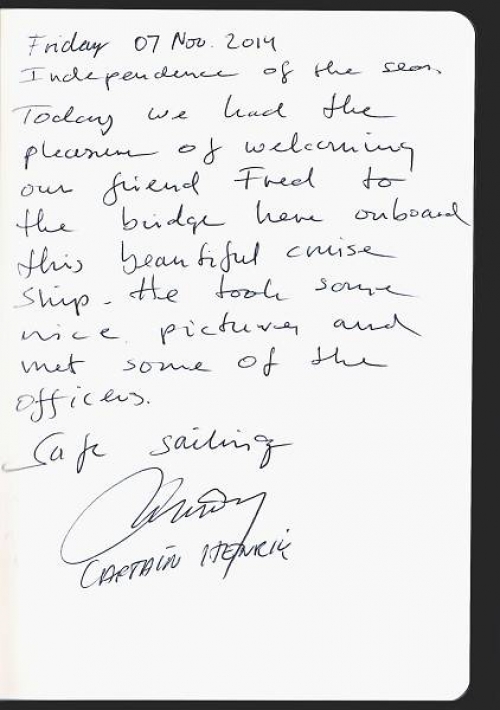 Friday 07 Nov. 2014
Independence of the seas.
Today we had the
pleasure of welcoming
our friend Fred to
the bridge here onboard
this beautiful cruise
ship. He took some
nice pictures and
met some of the
officers.
Safe sailing
CAPTAIN HENRIK